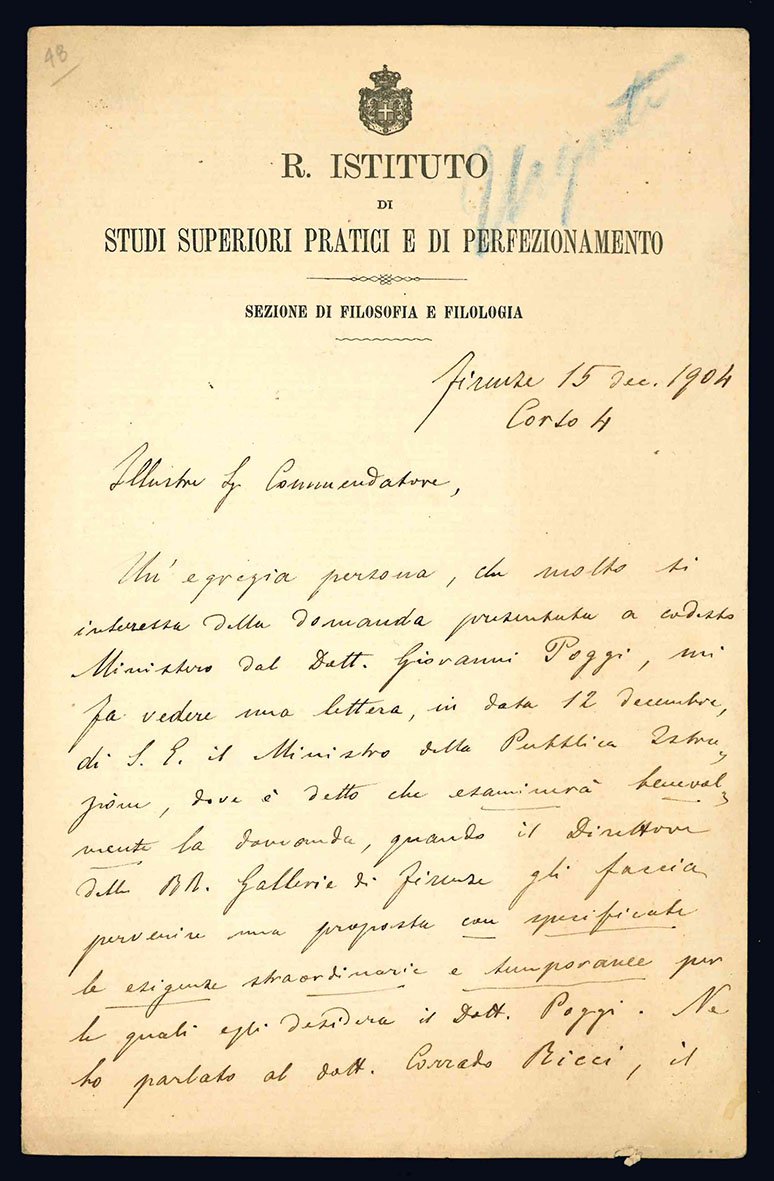 48
R. ISTITUTO
DI
STUDI SUPERIORI PRATICI E DI PERFEZIONAMENTO
SEZIONE DI FILOSOFIA E FILOLOGIA
Firenze 15 dec. 1904
Corso 4
Illustre Sg. Commendatore,
Un' egregia persona, che molto si
interessa della domanda presentata a codesto
Ministero dal Dott. Giovanni Poggi, mi
fa vedere una lettera, in data 12 decembre,
di S. E. il Ministro della Pubblica Istru„
zione, dove è detto che esaminerà benevol„
mente la domanda, quando il Direttore
delle RR. Gallerie di Firenze gli faccia
pervenire una proposta con specificate
le esigenze straordinarie e temporanee per
le quali egli desidera il Dott. Poggi. Ne
ho parlato al dott. Corrado Ricci, il